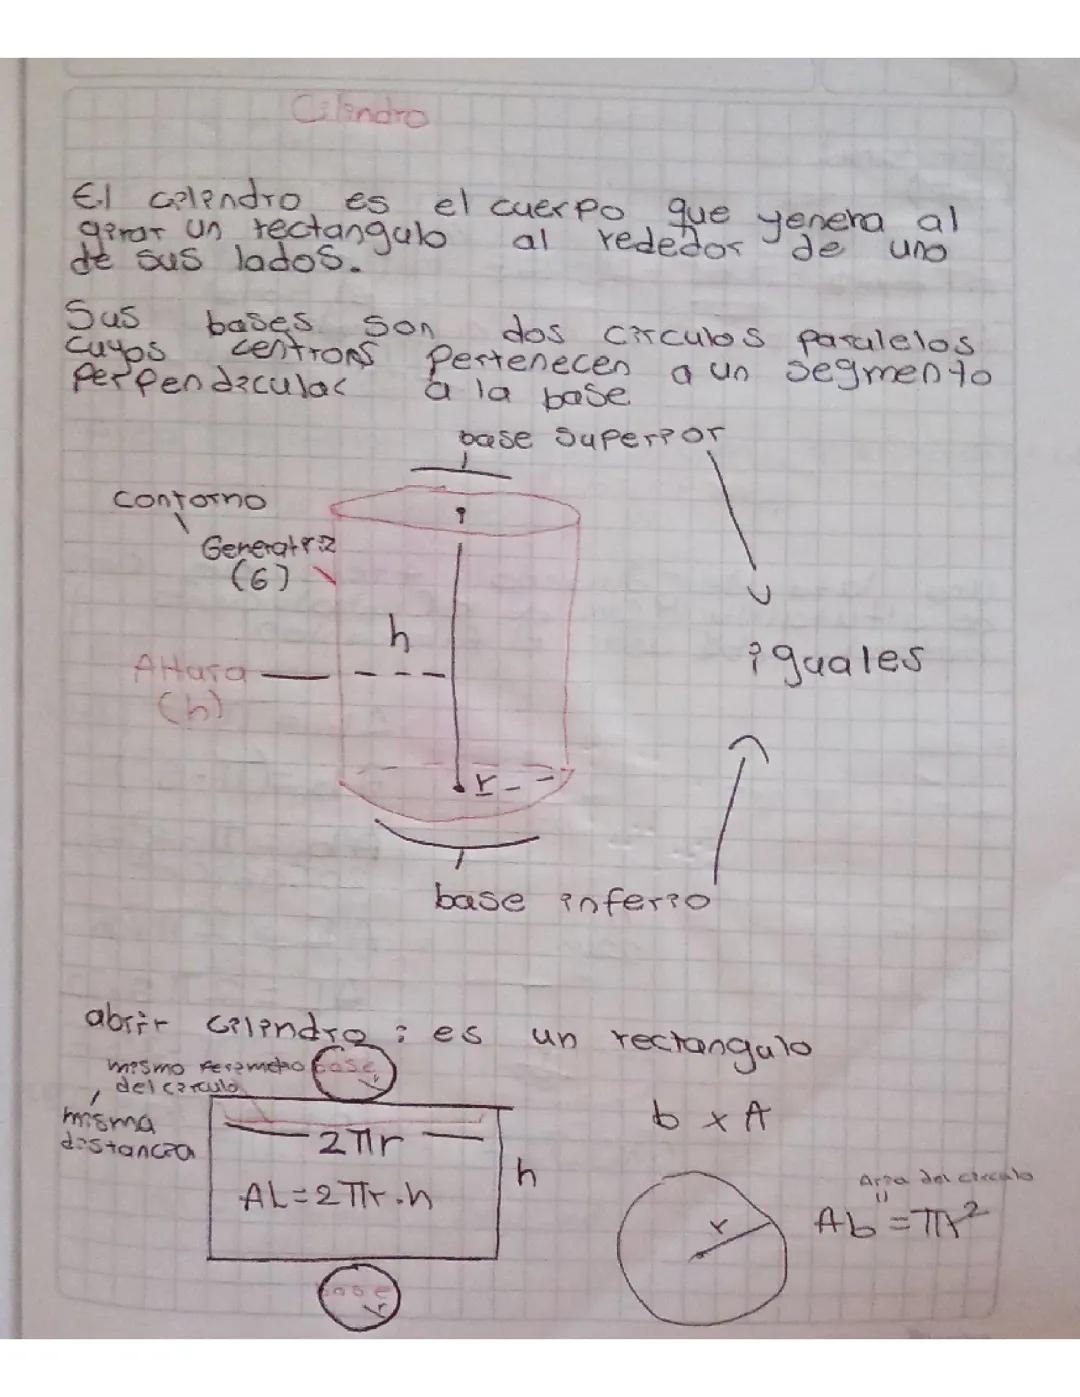 Cilindro
El cilindro es el cuerpo que yenera al
girar un rectangulo al rededor de uno
de sus lados.
Sus bases son dos circulos paralelos
cuyos centrons pertenecen a un segmento
perpendicular a la base
base superior
contorno
Generatriz
(G)
h
Altura
(h)
iguales
r
base inferio
abrir cilindro : es un rectangulo
mismo perimetro
del circulo
base
r
misma
distancia
2πr
b x A
h
AL=2πr.h
Area del circulo
r
Ab=πr²
base
r